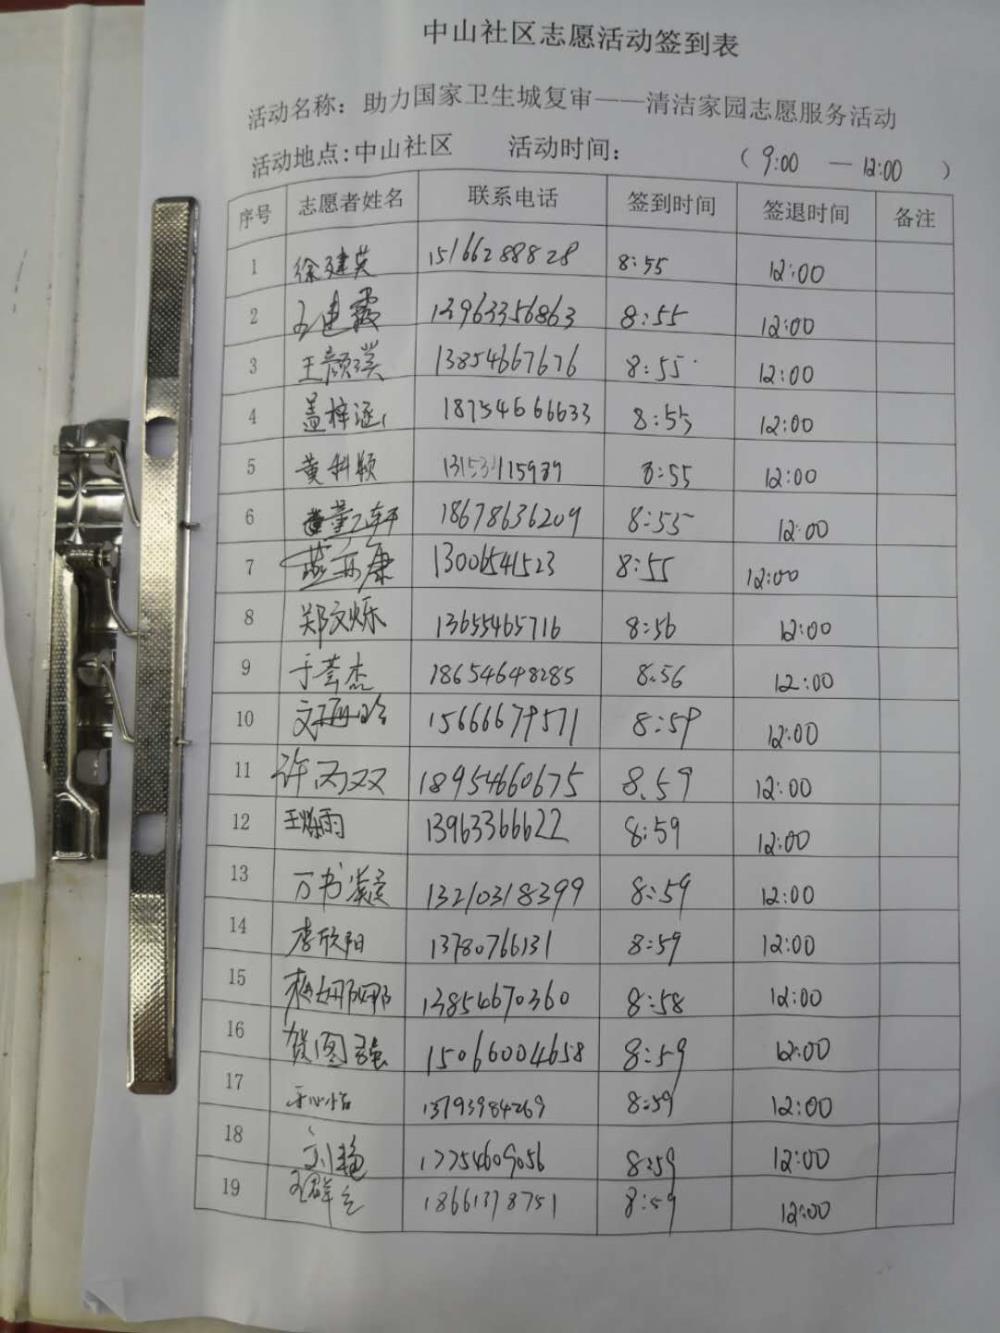 中山社区志愿活动签到表
活动名称：助力国家卫生城复审——清洁家园志愿服务活动
活动地点:中山社区 活动时间： （9:00 —12:00）
序号 志愿者姓名 联系电话 签到时间 签退时间 备注
1 徐建英 15166288828 8:55 12:00
2 王建霞 13963356863 8:55 12:00
3 王颜淇 13854667676 8:55 12:00
4 盖梓涵 18754666633 8:55 12:00
5 黄科颖 8:55 12:00
6 18678636209 8:55 12:00
7 13006541523 8:55 12:00
8 郑文烁 13655465716 8:56 12:00
9 于 杰 18654648285 8:56 12:00
10 8:59 12:00
11 许丙双 18954660675 8:59 12:00
12 王 雨 13963366622 8:59 12:00
13 万书 13210318399 8:59 12:00
14 李欣阳 13780766131 8:59 12:00
15 娜娜 13854670360 8:58 12:00
16 贺图强 15066004658 8:59 12:00
17 心怡 13793984269 8:59 12:00
18 刘艳 17754609056 8:59 12:00
19 18661378751 8:59 12:00